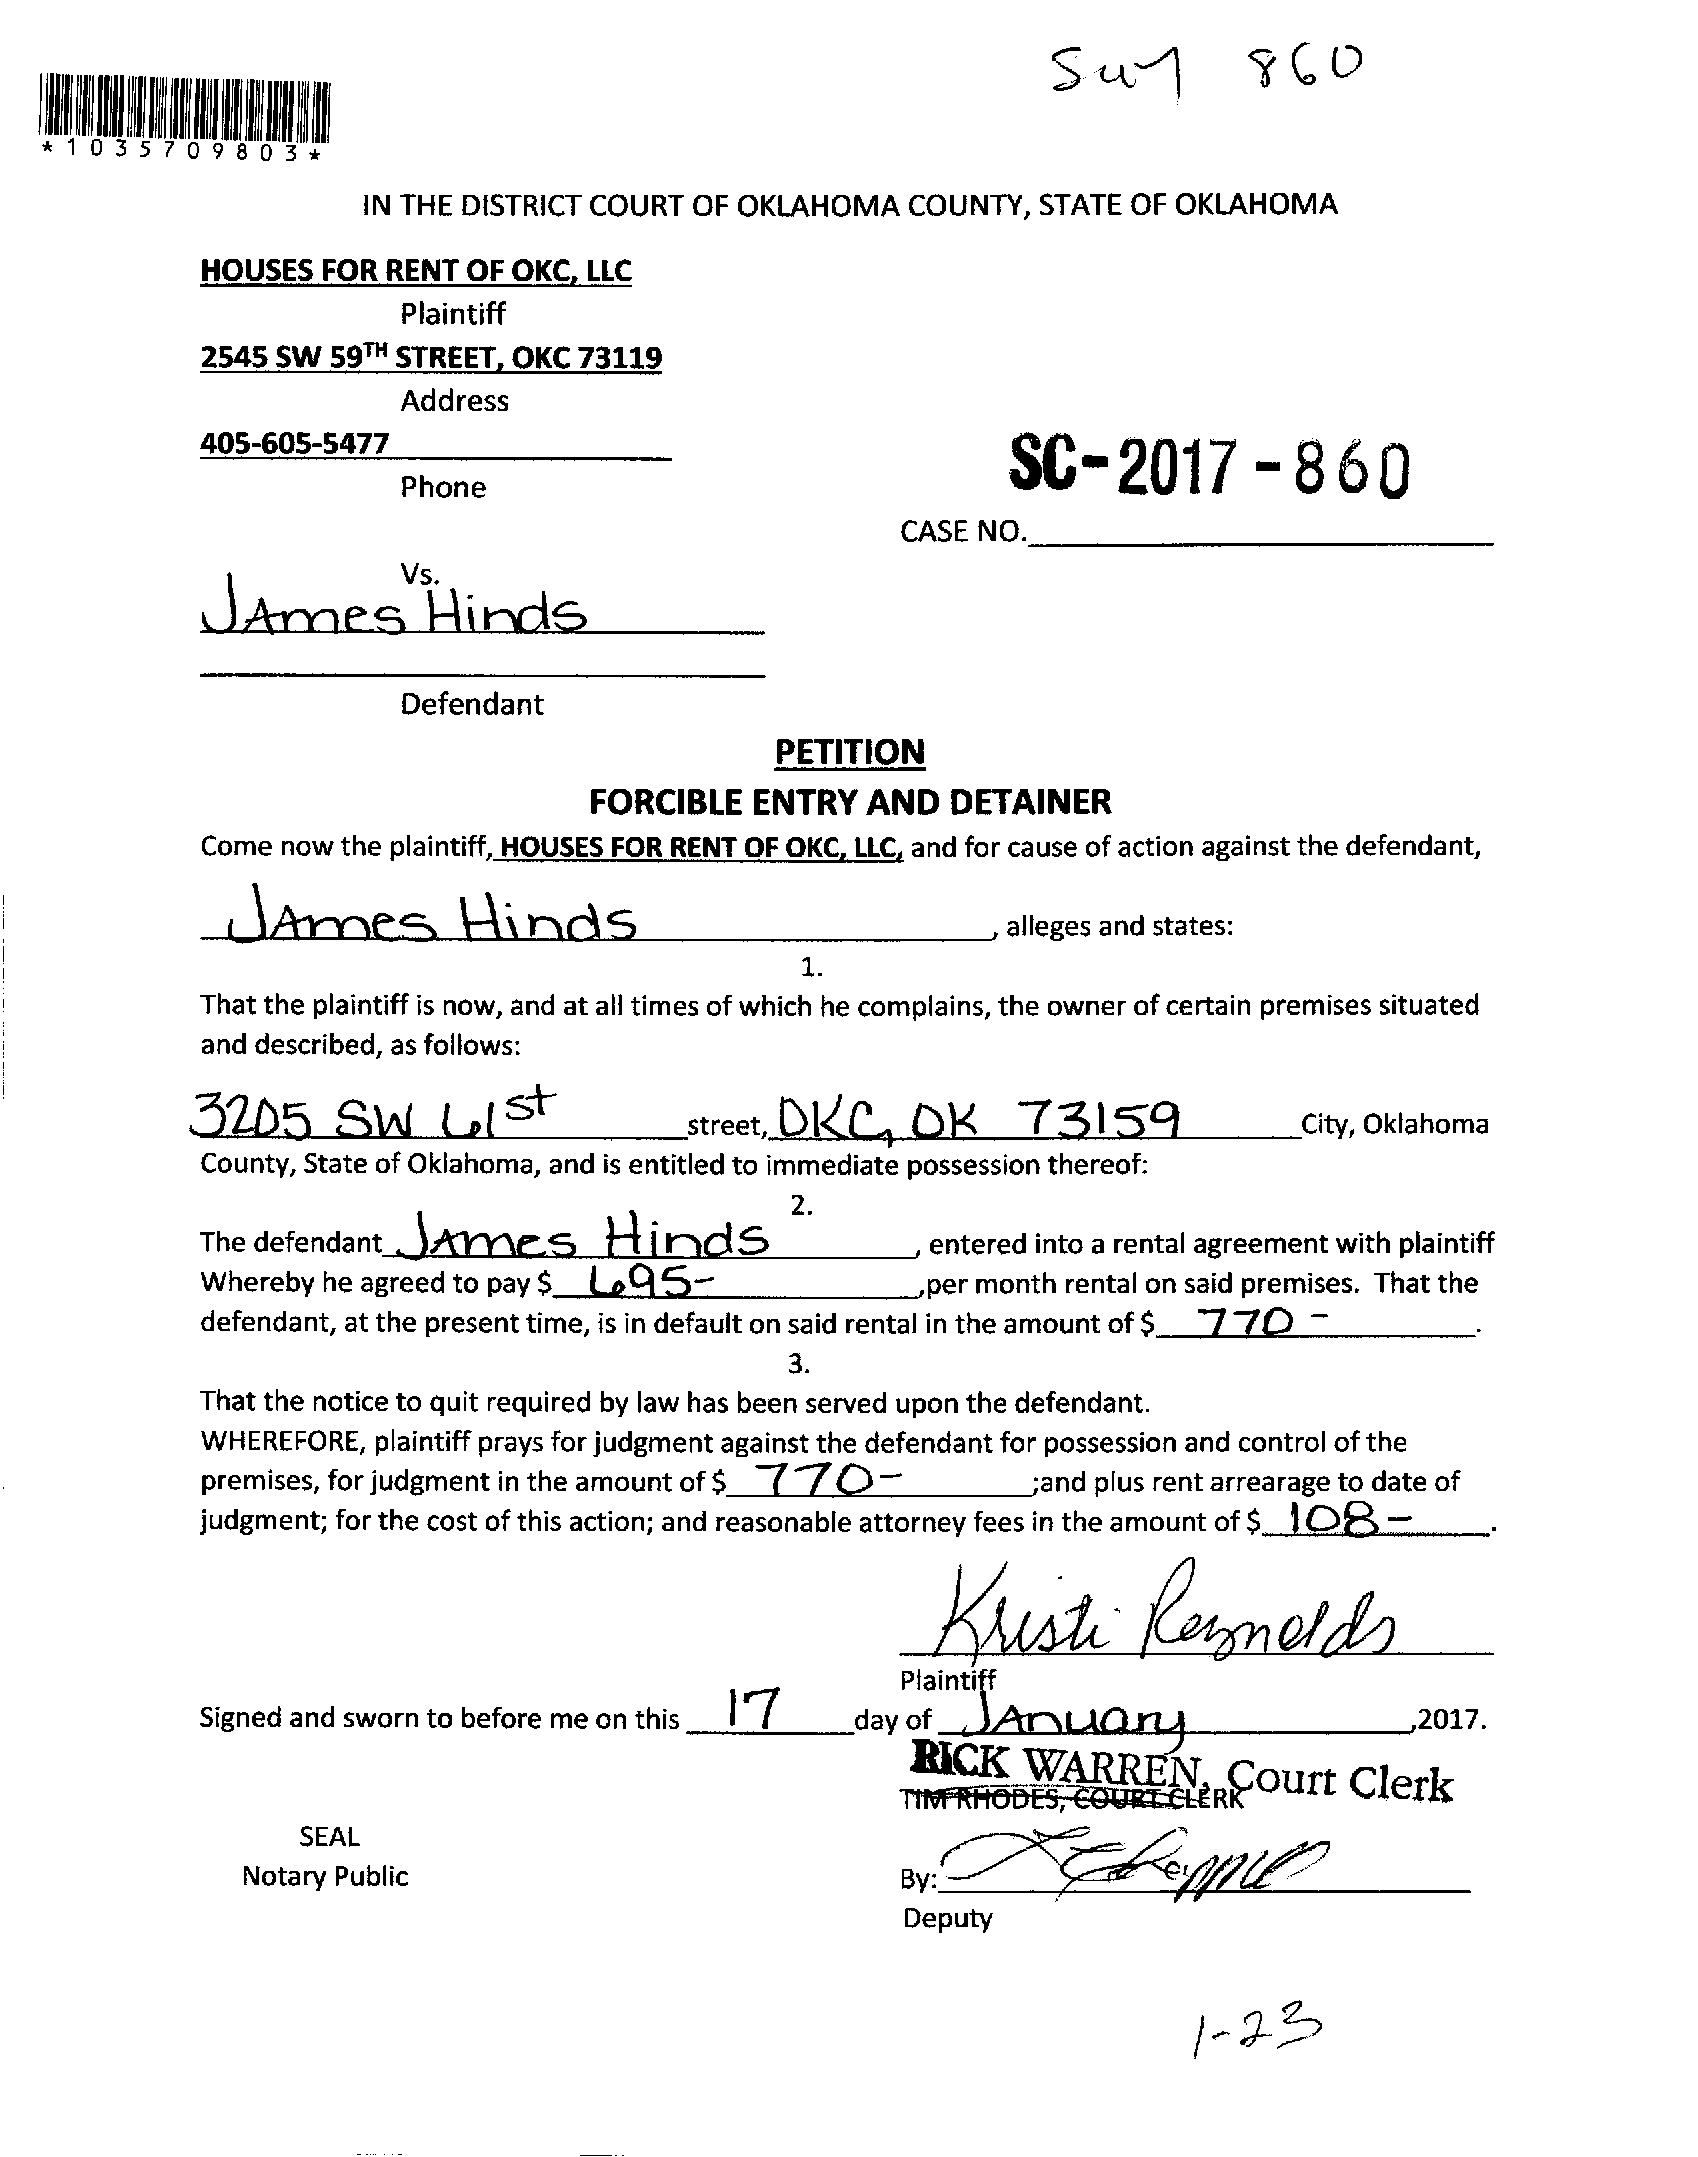 860
*1035709803*
IN THE DISTRICT COURT OF OKLAHOMA COUNTY, STATE OF OKLAHOMA
HOUSES FOR RENT OF OKC, LLC
Plaintiff
2545 SW 59TH STREET, OKC 73119
Address
405-605-5477
Phone
SC-2017-860
CASE NO.
Vs.
JAmes Hinds
Defendant
PETITION
FORCIBLE ENTRY AND DETAINER
Come now the plaintiff, HOUSES FOR RENT OF OKC, LLC, and for cause of action against the defendant,
JAmes Hinds, alleges and states:
1.
That the plaintiff is now, and at all times of which he complains, the owner of certain premises situated
and described, as follows:
3205 SW 61st street, OKC, OK 73159 City, Oklahoma
County, State of Oklahoma, and is entitled to immediate possession thereof:
2.
The defendant JAmes Hinds, entered into a rental agreement with plaintiff
Whereby he agreed to pay $ 695- ,per month rental on said premises. That the
defendant, at the present time, is in default on said rental in the amount of $ 770-.
3.
That the notice to quit required by law has been served upon the defendant.
WHEREFORE, plaintiff prays for judgment against the defendant for possession and control of the
premises, for judgment in the amount of $ 770- ;and plus rent arrearage to date of
judgment; for the cost of this action; and reasonable attorney fees in the amount of $ 108-.
Kristi Reynolds
Plaintiff
Signed and sworn to before me on this 17 day of JAnuary ,2017.
RICK WARREN, Court Clerk
TIM RHODES, COURT CLERK
SEAL
Notary Public
By:
Deputy
1-23